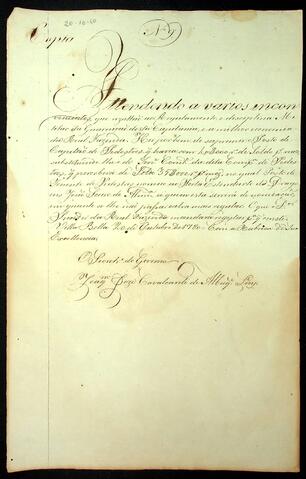 20-10-90
Copia
N.º 9
Attendendo a varios incon
venientes, que rezultão ao Regulamento, e disciplina Me-
litar da Guarnição desta Capitania, e a melhor economia
da Real Fazenda. Hey por bem de suprimir o Posto de
Capitão de Pedestres, q havia com de Soldo p. mez,
substituindo lhe o de Ten.
tres, q perceberá de Soldo p. mez, no qual Posto de
Tenente de Pedestres nomeio ao Porta Estandarte de Drago
ens José de o quem esta servirá de nomeação,
em quanto se lhe não passa outra mais regular. O que o Sr.
da Real Fazenda mandará registar
Villa Bella 20 de Outubro de 1790. Com a Rubrica de Sua
Excellencia.
O Secret.º do Governo
Joaq.m José Cavalcante de Albuq.e Lins